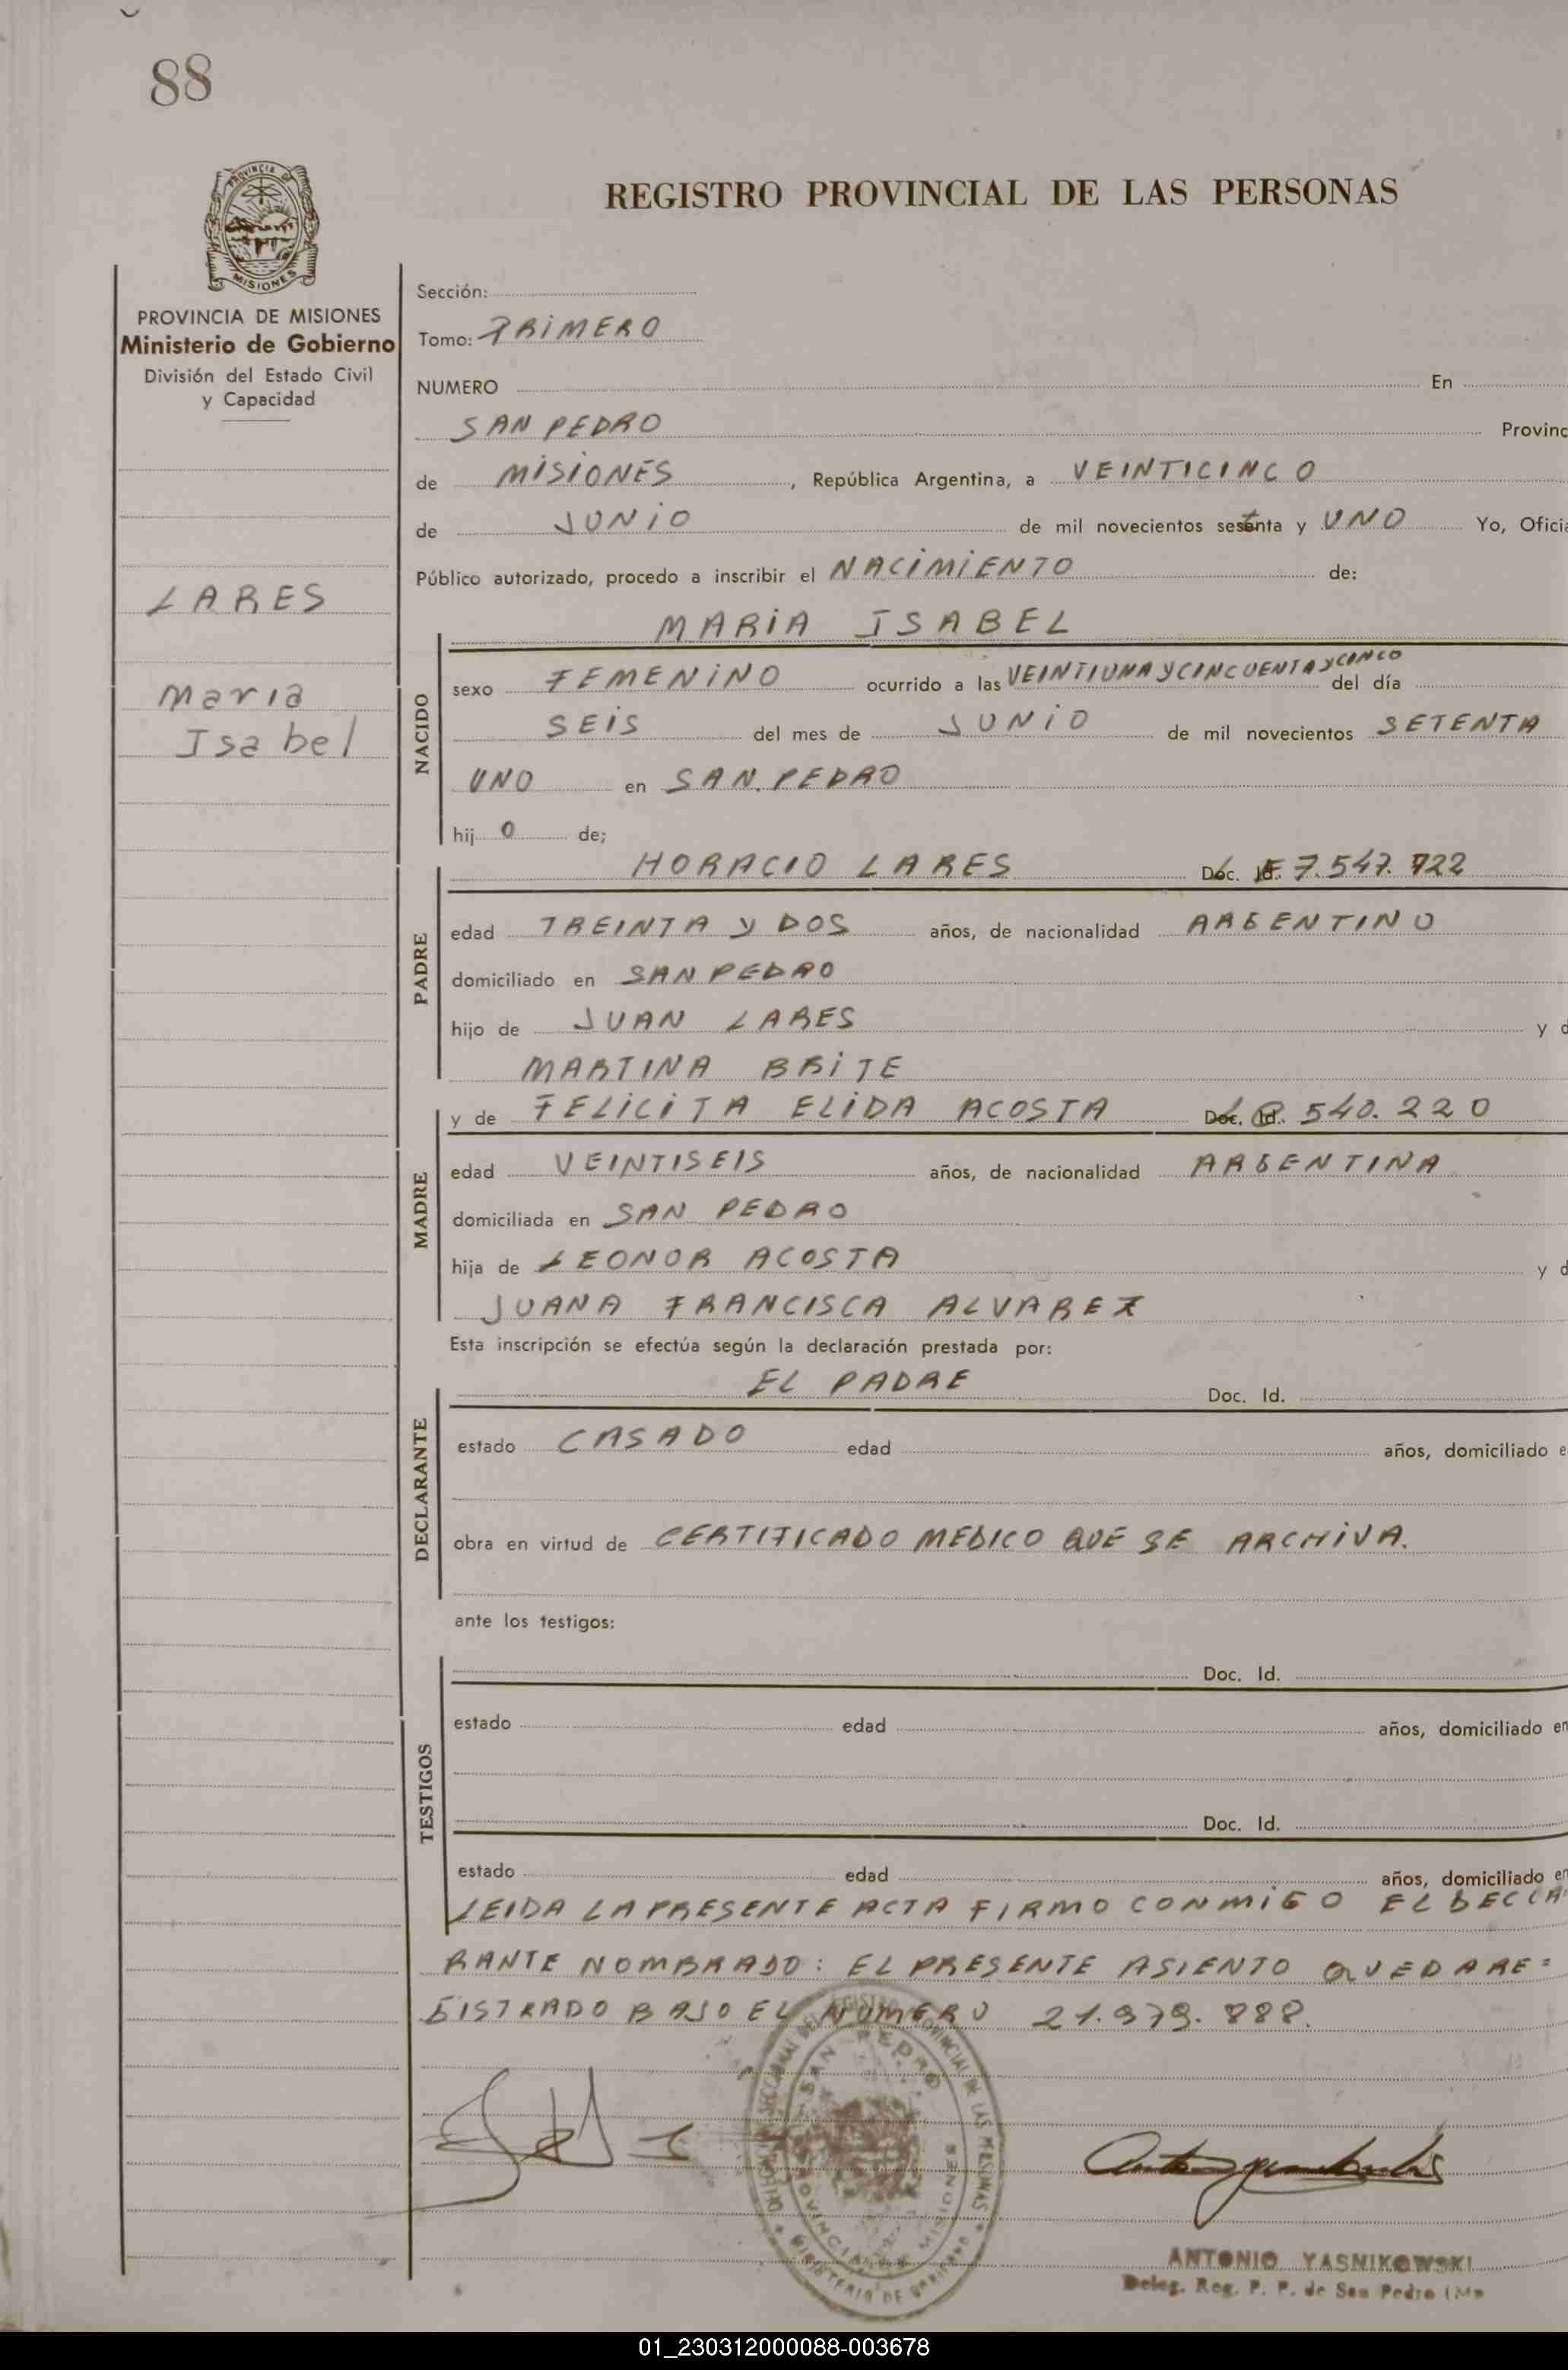 88
PROVINCIA DE
MISIONES
REGISTRO PROVINCIAL DE LAS PERSONAS
PROVINCIA DE MISIONES
Ministerio de Gobierno
División del Estado Civil
y Capacidad
LARES
Maria
Isabel
Sección:
Tomo: PRIMERO
NUMERO En
SAN PEDRO Provinc
de MISIONES, República Argentina, a VEINTICINCO
de JUNIO de mil novecientos setenta y UNO Yo, Ofici
Público autorizado, procedo a inscribir el NACIMIENTO de:
MARIA ISABEL
NACIDO
sexo FEMENINO ocurrido a las VEINTIUNA Y CINCUENTA Y CINCO del día
SEIS del mes de JUNIO de mil novecientos SETENTA
UNO en SAN PEDRO
hij o de;
PADRE
HORACIO LARES Doc. Id. 7.547.722
edad TREINTA Y DOS años, de nacionalidad ARGENTINO
domiciliado en SAN PEDRO
hijo de JUAN LARES y d
MARTINA BRITE
MADRE
y de FELICITA ELIDA ACOSTA Doc. Id. 540.220
edad VEINTISEIS años, de nacionalidad ARGENTINA
domiciliada en SAN PEDRO
hija de LEONOR ACOSTA y d
JUANA FRANCISCA ALVAREZ
Esta inscripción se efectúa según la declaración prestada por:
DECLARANTE
EL PADRE Doc. Id.
estado CASADO edad años, domiciliado e
obra en virtud de CERTIFICADO MEDICO QUE SE ARCHIVA.
ante los testigos:
TESTIGOS
Doc. Id.
estado edad años, domiciliado en
Doc. Id.
estado edad años, domiciliado en
LEIDA LA PRESENTE ACTA FIRMO CONMIGO EL DECLA
RANTE NOMBRADO: EL PRESENTE ASIENTO QUEDA RE=
GISTRADO BAJO EL NUMERO 21.979.888.
SAN PEDRO
MISIONES
MINISTERIO DE GOBIERNO
ANTONIO YASNIKOWSKI
Deleg. Reg. P. P. de San Pedro (Mn
01_230312000088-003678